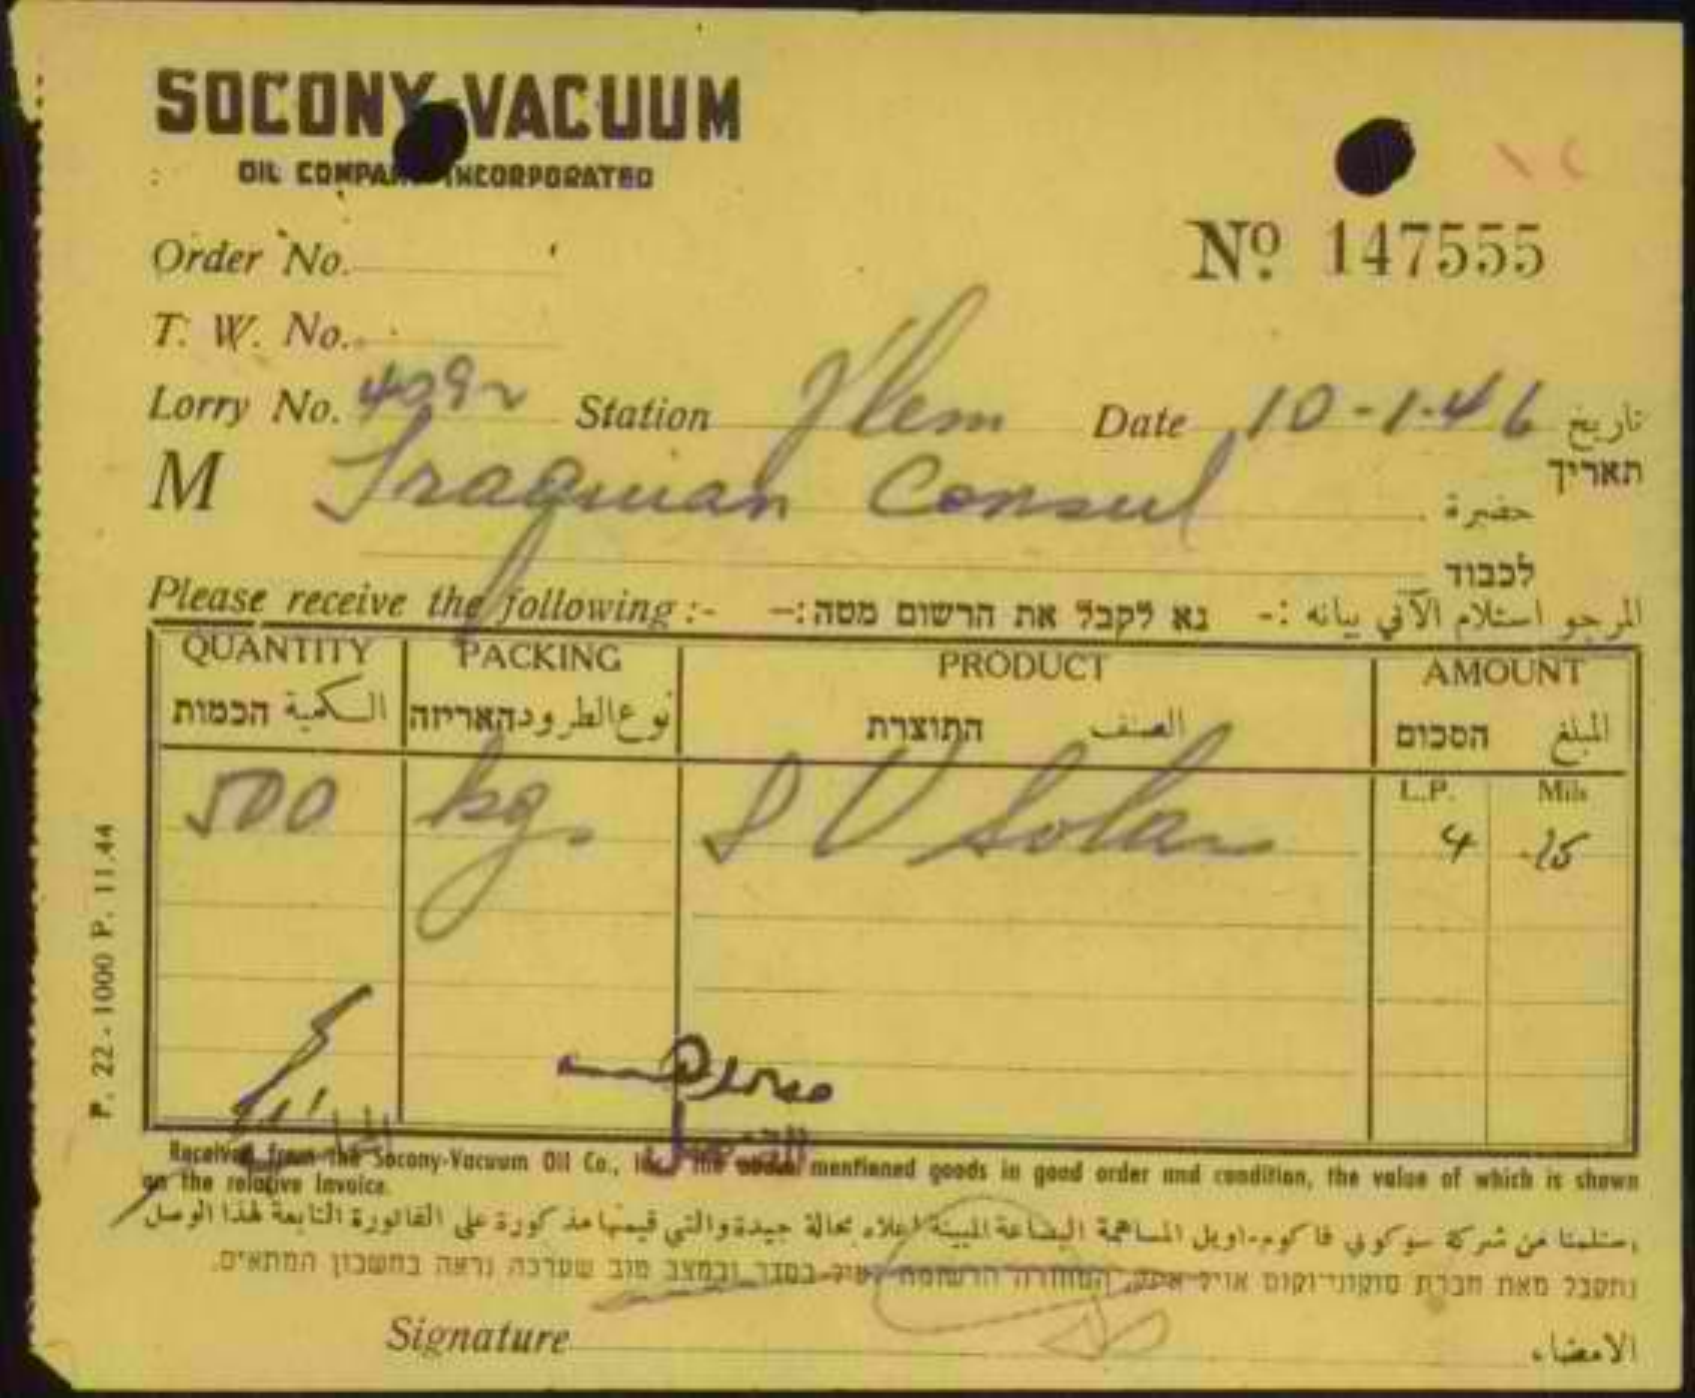 SOCONY-VACUUM
OIL COMPANY INCORPORATED
Order No.
Nº 147555
T. W. No.
Lorry No. 4092 Station Jlem Date 10-1-46 تاريخ
תאריך
M Iraquian Consul حضرة
לכבוד
Please receive the following :- נא לקבל את הרשום מטה :- المرجو استلام الآتي بيانه :-
QUANTITY PACKING PRODUCT AMOUNT
הכמות الكمية האריזה نوع الظروف התוצרת الصنف הסכום المبلغ
L.P. Mils
500 kg. S V Solar 4 .15
P. 22 - 1000 P. 11.44
Received from the Socony-Vacuum Oil Co., Inc. the above mentioned goods in good order and condition, the value of which is shown
on the relative Invoice.
استلمنا من شركة سوكوني فاكوم-اويل المساهمة البضاعة المبينة اعلاه بحالة جيدة والتي قيمتها مذكورة على الفاتورة التابعة لهذا الوصل
נתקבל מאת חברת סוקוני־וקום אויל הסחורה הרשומה לעיל בסדר ובמצב טוב שערכה נראה בחשבון המתאים.
Signature الامضاء